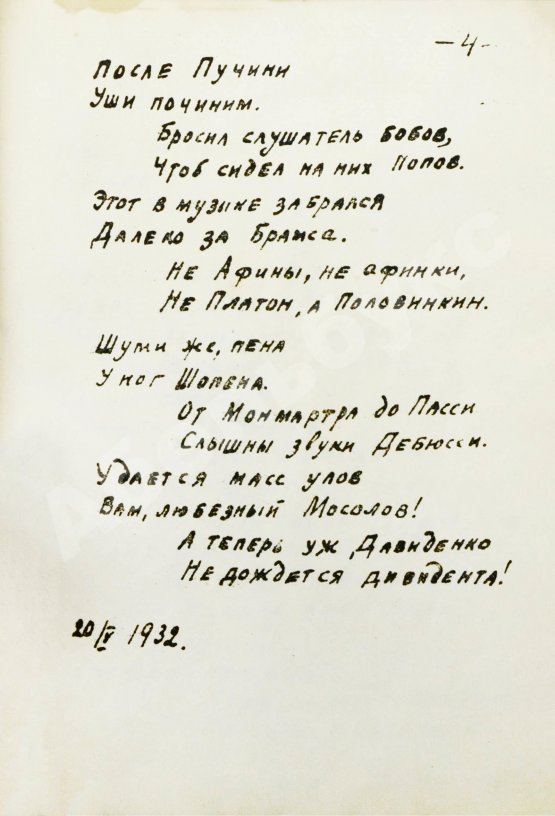 — 4 -
После Пучини
Уши починим.
Бросил слушатель бобов,
Чтоб сидел на них Попов.
Этот в музыке забрался
Далеко за Брамса.
Не Афины, не афинки,
Не Платон, а Половинкин.
Шуми же, пена
У ног Шопена.
От Монмартра до Пасси
Слышны звуки Дебюсси.
Удается масс улов
Вам, любезный Мосолов!
А теперь уж Давиденко
Не дождется дивидента!
20/V 1932.